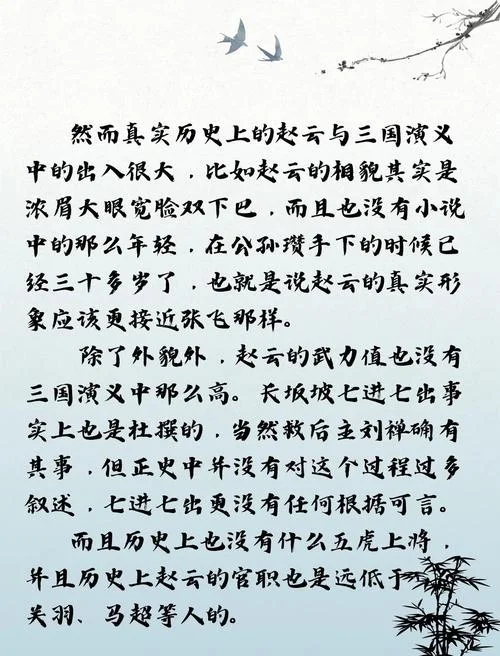 然而真实历史上的赵云与三国演义
中的出入很大，比如赵云的相貌其实是
浓眉大眼宽脸双下巴，而且也没有小说
中的那么年轻，在公孙瓒手下的时候已
经三十多岁了，也就是说赵云的真实形
象应该更接近张飞那样。
除了外貌外，赵云的武力值也没有
三国演义中那么高。长坂坡七进七出事
实上也是杜撰的，当然救后主刘禅确有
其事，但正史中并没有对这个过程过多
叙述，七进七出更没有任何根据可言。
而且历史上也没有什么五虎上将，
并且历史上赵云的官职也是远低于
关羽、马超等人的。